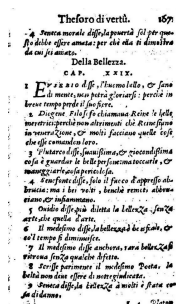 Thesoro di vertù. 167
4 Seneca morale disse, la pouertà sol per que
sto debbe essere amata: per chè ella ti dimostra
da cui sei amato.
Della Bellezza.
CAP. XXIX.
1 disse, l'huomo bello, & sano
di mente, mai può gloriarsi: perche in
breue tempo perde il suo fiore.
2 Diogene Filosofo chiamaua Reine le belle
meretrici: perche non altrimenti che Reine sono
in veneratione, & molti facciano quelle cose
che esse comandon loro.
3 Plutarco disse, suauissima, & giocondissima
cosa è guardar le belle persone: ma toccarle,
è pericolosa.
4 Senofonte disse, solo il fuoco d'appresso ab
brucia: ma i bei volti, benchè remoti abbru
ciano, & infiammano.
5 Ouidio disse più diletta la bellezza senza
arte, che quella d'arte.
6 Il medesimo disse, la bellezza è bè
col tempo si diminuisce.
7 Il medesimo disse anchora, rara bellezza si
ritroua senza qualche difetto.
8 Scrisse parimente il medesimo Poeta, la
bella non dèe essere di notte giudicata.
9 Seneca disse, la bellezza à molti è stata
di danno.